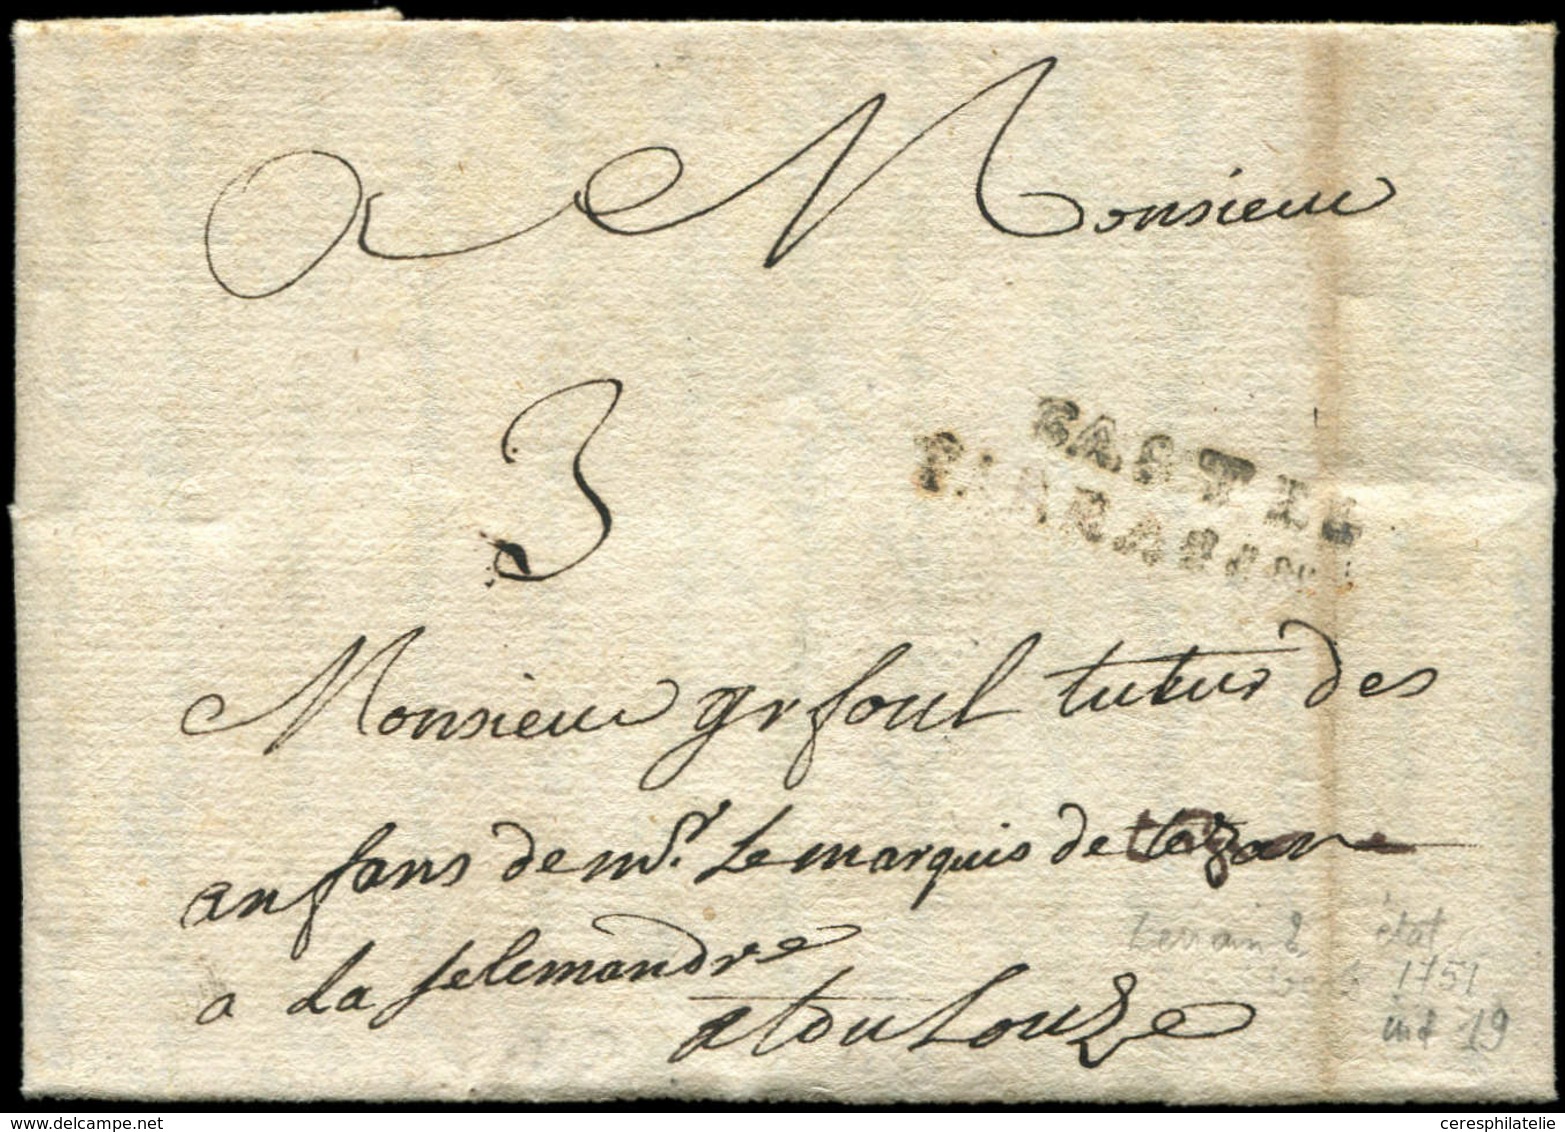 a Monsieur
3
CASTEL
SARRASIN
Monsieur grfoul tuteur des
anfans de mr. Le marquis de Lezan
a La selemandre
a touLouze
Lenain 2 état
1751
ind 19
ceresphilatelie